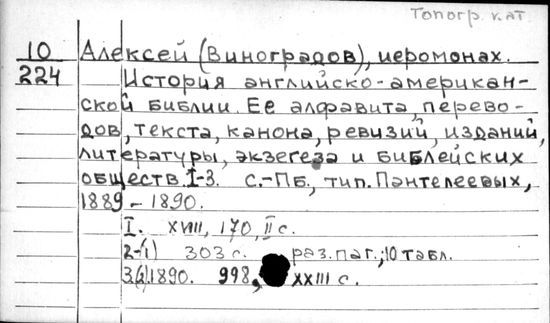 Топогр. кат
10 Алексей (Виноградов), иеромонах.
224 История английско-американ-
ской библии. Ее алфавита, перево-
дов, текста, канона, ревизий, изданий,
литературы, экзегеза и библейских
обществ. I-3. С.-Пб., тип. Пантелеевых,
1889-1890.
I. XVIII, 170, II с.
2-(1) 303 с. раз. паг.; 10 табл.
3(2) 1890. 998, XXIII с.